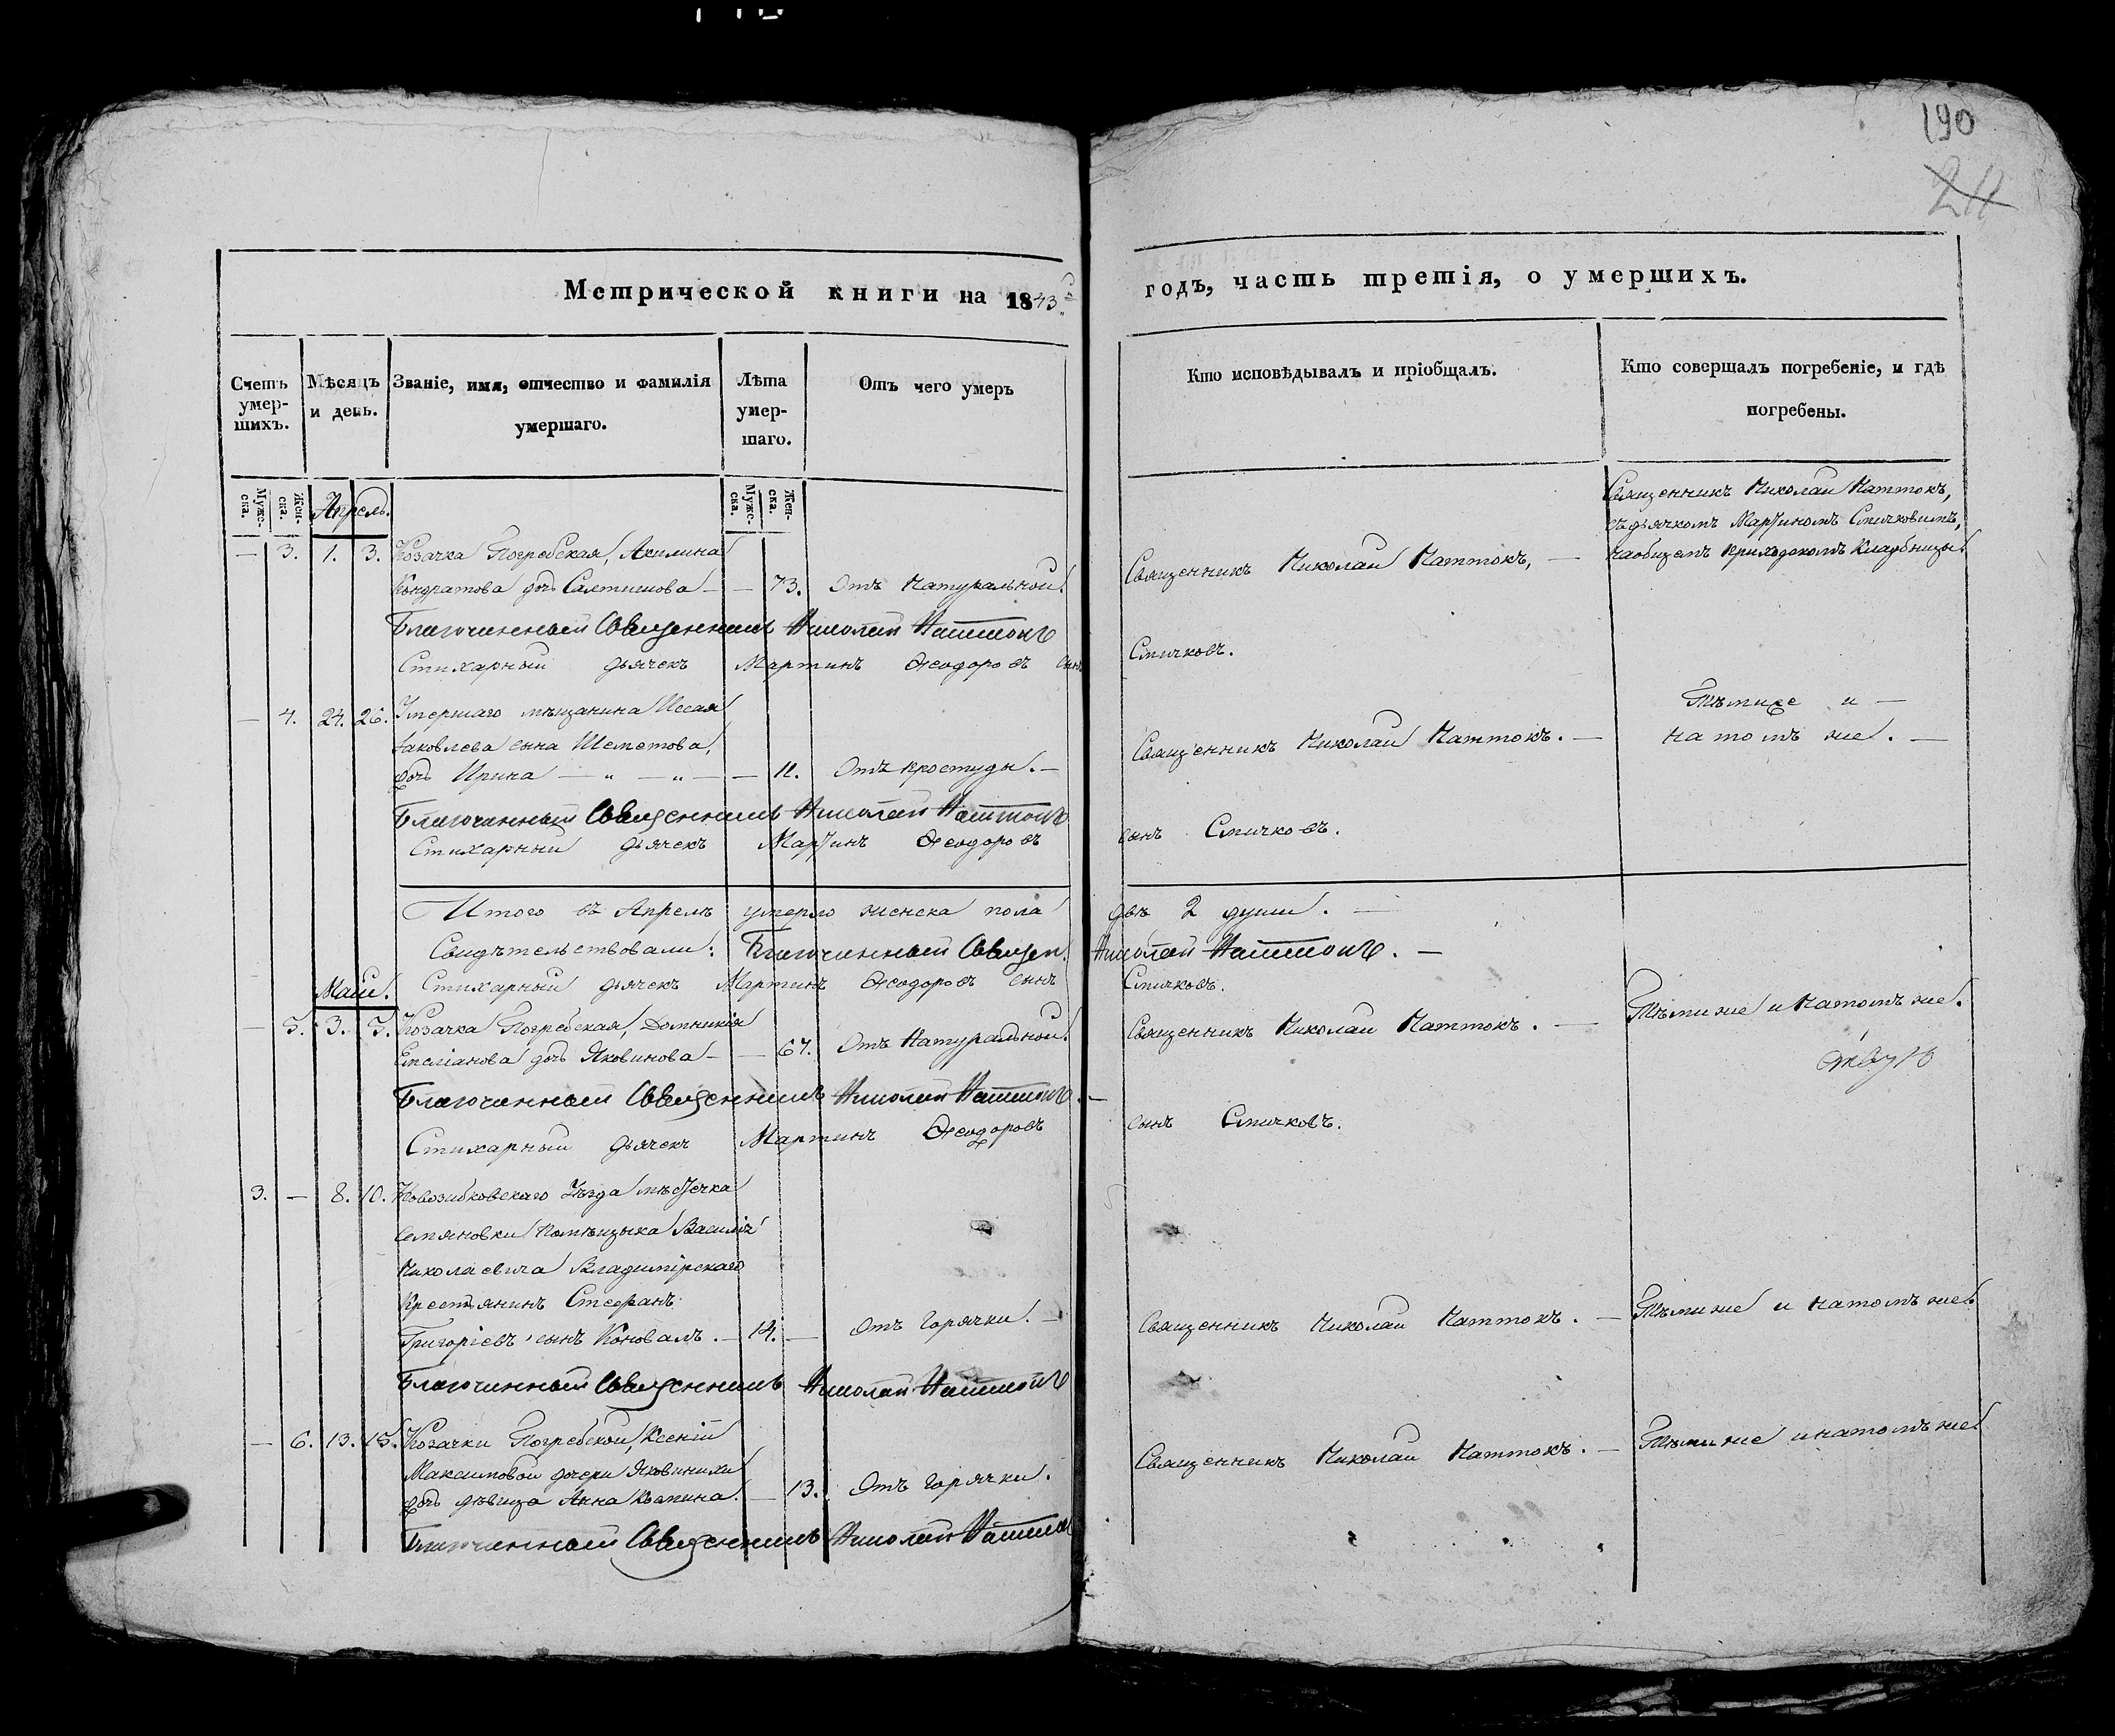 190
211
Метрической книги на 1843 годъ, часть третія, о умершихъ.
Счетъ умер-шихъ.
Мѣсяцъ и день.
Званіе, имя, отчество и фамилія умершаго.
Лѣта умер-шаго.
Отъ чего умеръ
Кто исповѣдывалъ и пріобщалъ.
Кто совершалъ погребеніе, и гдѣ погребены.
Муже-ска.
Жен-ска.
Муже-ска.
Жен-ска.
Апрель.
Священникъ Николай Наттокъ,
съ дьячкомъ Мартиномъ Смичковимъ,
на общемъ приходскомъ кладбищѣ.
— 3. 1. 3. Козачка Погребская, Акилина
Кондратова дочь Салтишова — — 73. Отъ Натуральной.
Священникъ Николай Наттокъ, —
Благочинный Священникъ Николай Наттокъ
Стихарный дьячекъ Мартинъ Ѳеодоровъ сынъ Смичковъ.
— 4. 24. 26. Умершаго мѣщанина Исаая
Іаковлева сына Шеметова,
дочь Ирина — „ — „ — — 11. Отъ простуды. —
Священникъ Николай Наттокъ. —
Тѣмиже и —
на томъ же. —
Благочинный Священникъ Николай Наттокъ
Стихарный дьячекъ Мартинъ Ѳеодоровъ сынъ Смичковъ.
Итого въ Апрелѣ умерло женска пола двѣ 2 души. —
Свидѣтельствовали: Благочинный Священ. Николай Наттокъ. —
Стихарный дьячекъ Мартинъ Ѳеодоровъ сынъ Смичковъ.
Май.
— 5. 3. 5. Козачка Погребская, Домникія
Емеліанова дочь Яковинова — — 67. Отъ Натуральной.
Священникъ Николай Наттокъ. —
Тѣмиже и на томъ же.
Благочинный Священникъ Николай Наттокъ. —
Стихарный дьячекъ Мартинъ Ѳеодоровъ сынъ Смичковъ.
3. — 8. 10. Новозибковскаго Уѣзда мѣстечка
Семяновки помѣщика Василія
Николаевича Владимірскаго
Крестянинъ Стефанъ
Григоріевъ сынъ Коновалъ. — 14. — Отъ горячки. —
Священникъ Николай Наттокъ. —
Тѣмиже и на томъ же.
Благочинный Священникъ Николай Наттокъ
— 6. 13. 15. Козачки Погребской, Ксеніи
Максимовой дочери Яковинихи
дочь девица Анна — 13. Отъ горячки.
Священникъ Николай Наттокъ. —
Тѣмиже и на томъ же.
Благочинный Священникъ Николай Наттокъ